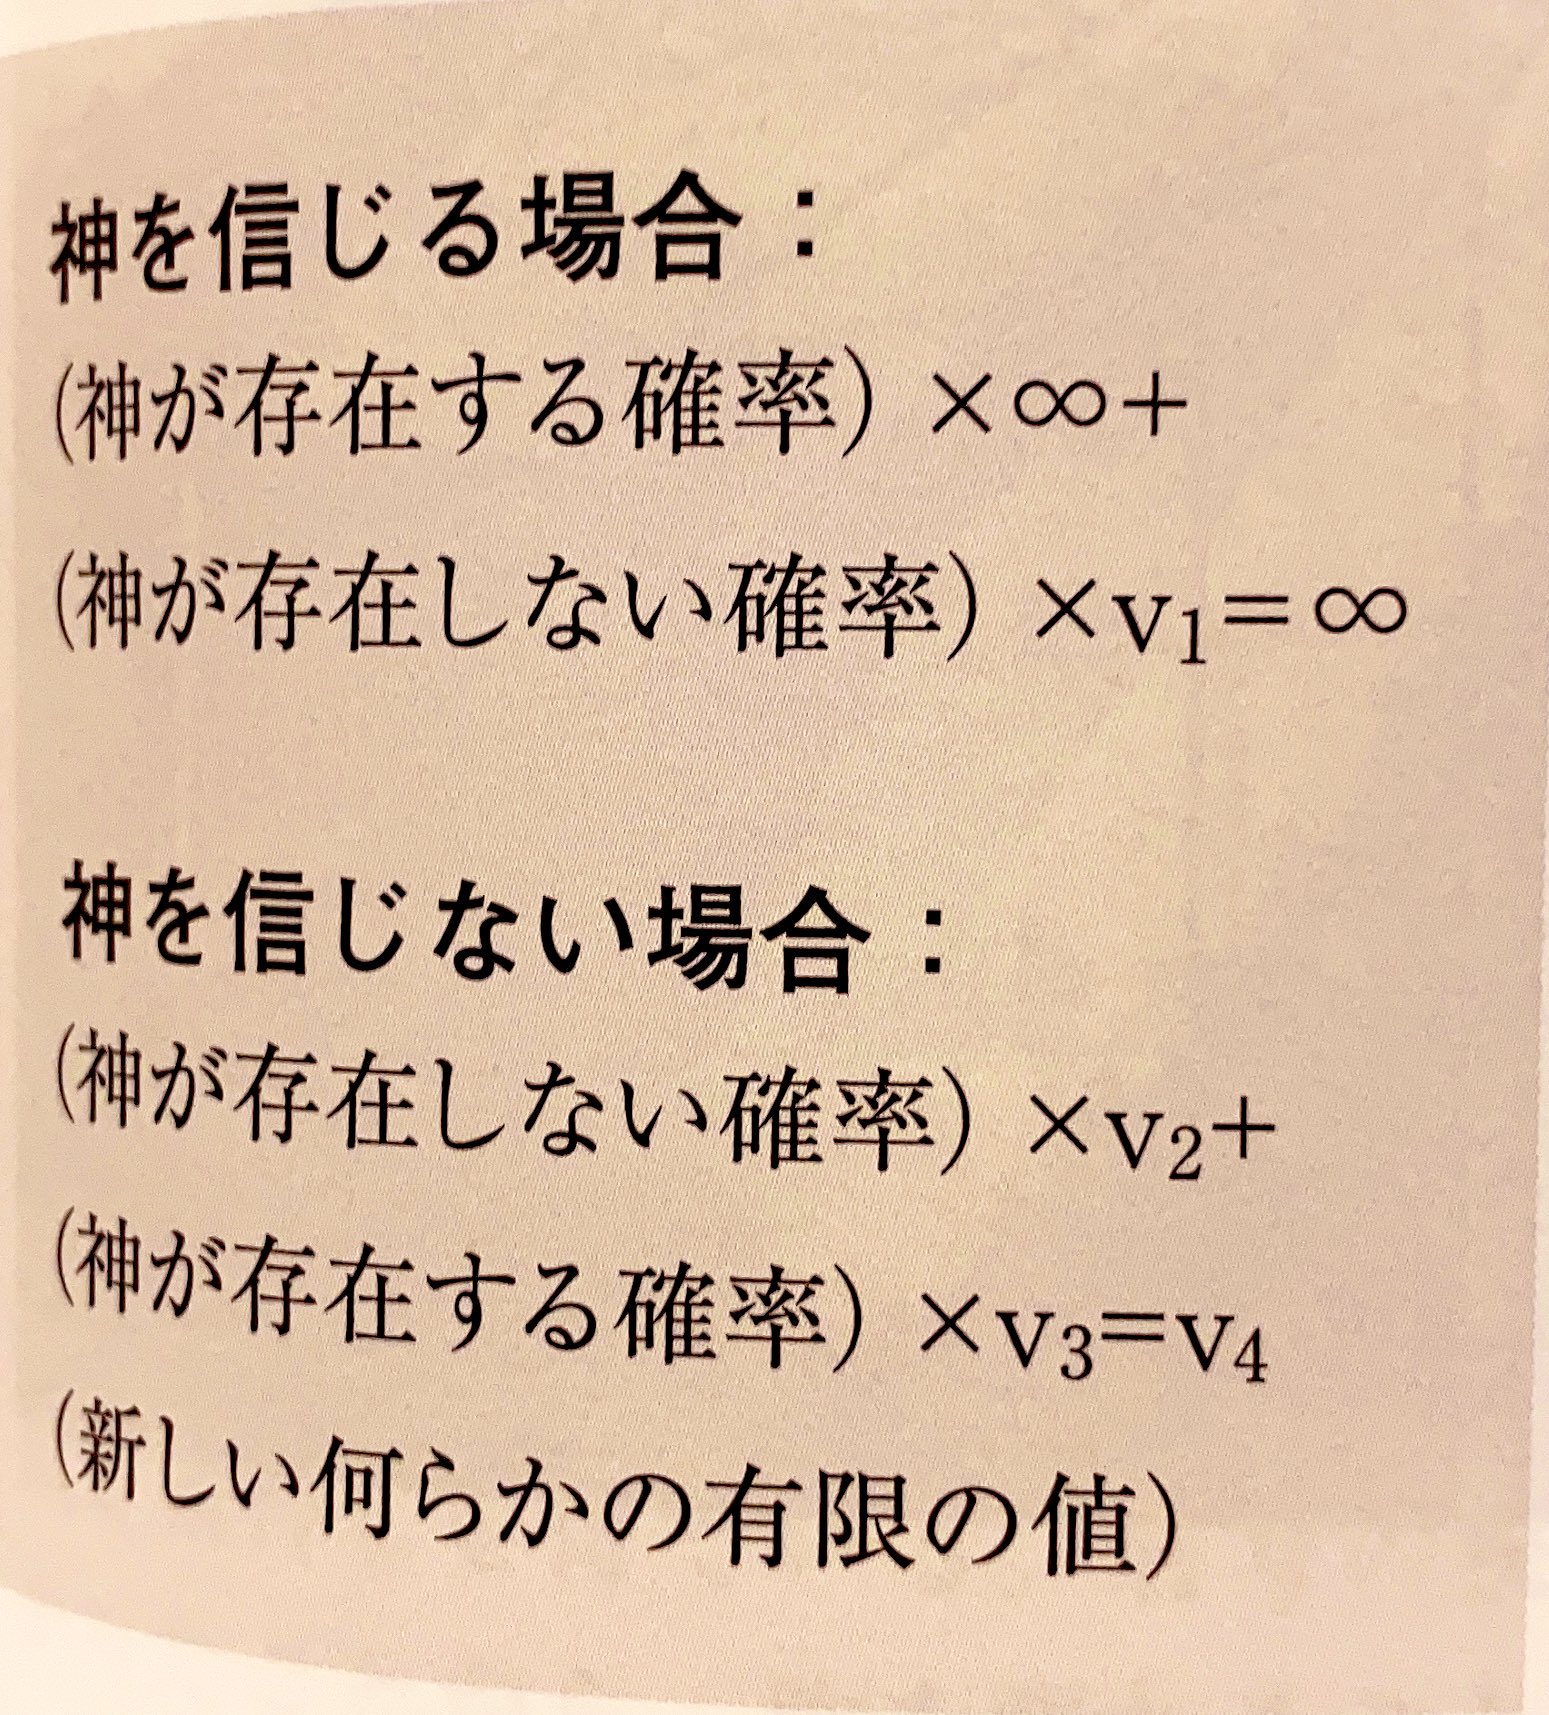 神を信じる場合：
(神が存在する確率) ×∞+
(神が存在しない確率) ×v₁=∞
神を信じない場合：
(神が存在しない確率) ×v₂+
(神が存在する確率) ×v₃=v₄
(新しい何らかの有限の値)